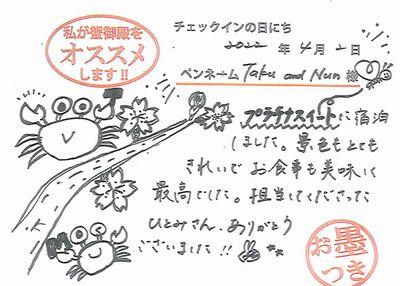 私が蟹御殿を
オススメ
します!!
チェックインの日にち
2022 年 4月 2日
ペンネーム Taku and Nun 様
プラチナスイートに宿泊
しました。景色もとても
きれいで お食事も美味しく
最高でした。担当してくださった
ひとみさん、ありがとう
ございました!!
お墨
つき